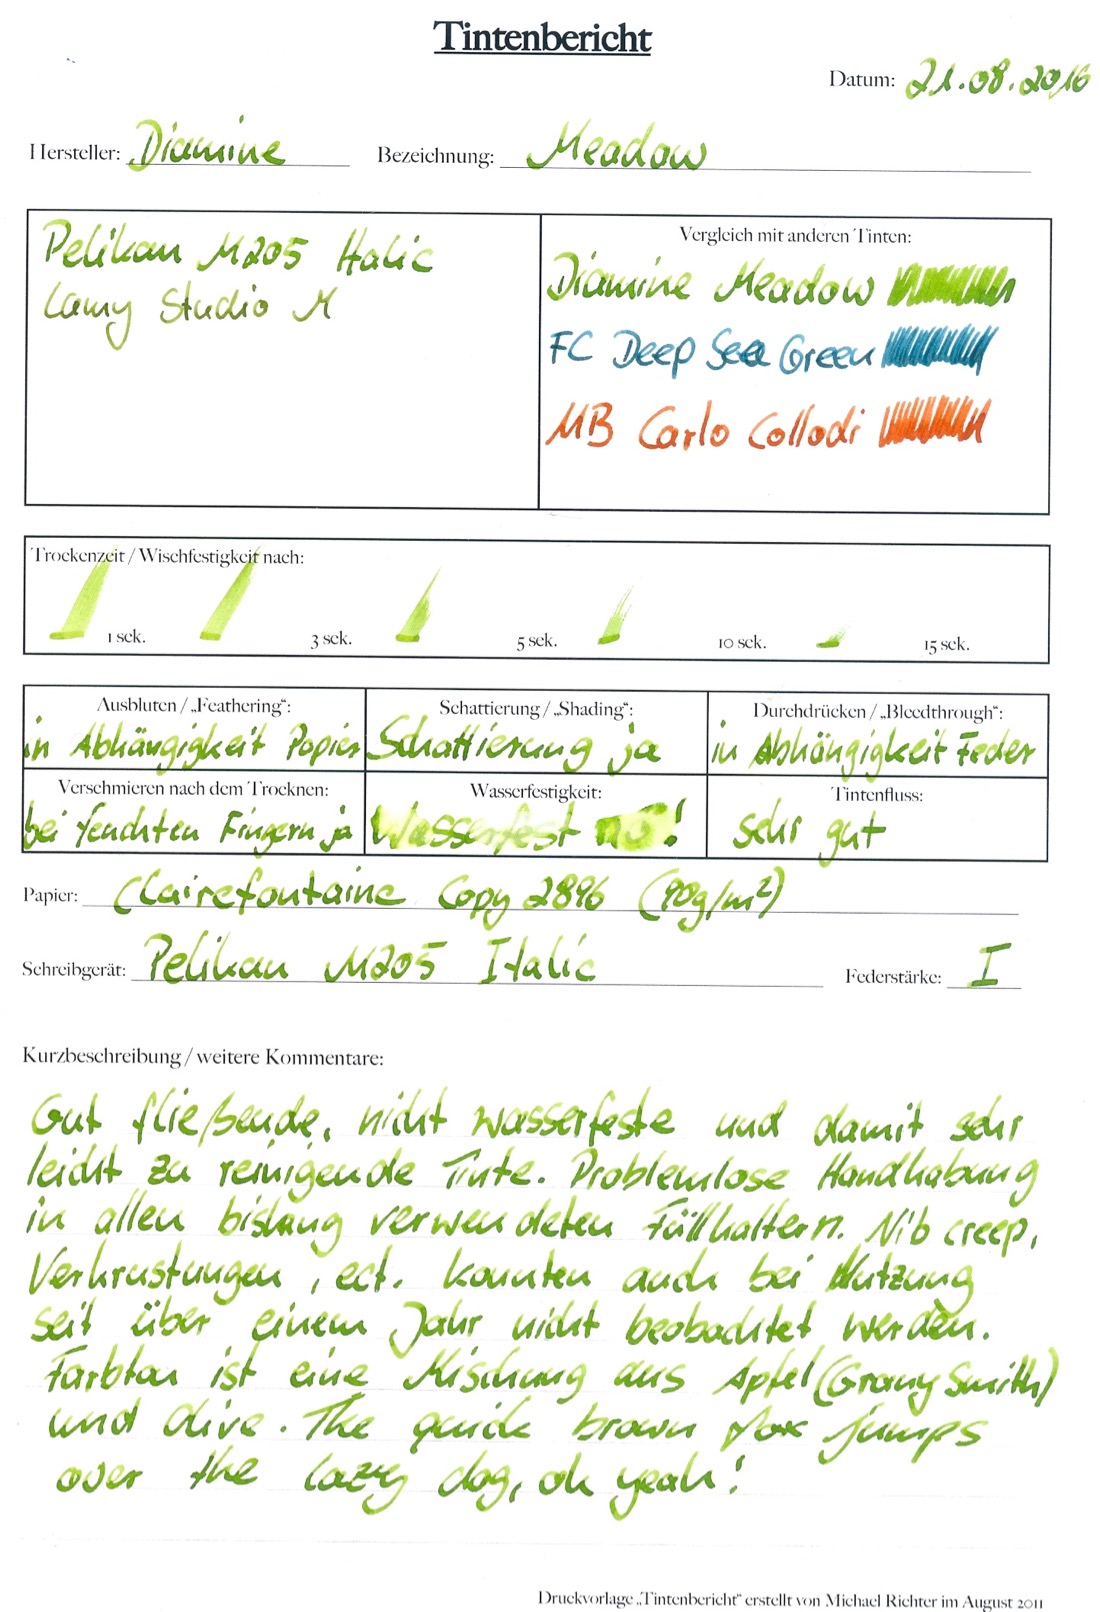 Tintenbericht
Datum: 21.08.2016
Hersteller: Diamine Bezeichnung: Meadow
Pelikan M205 Italic
Lamy Studio M
Vergleich mit anderen Tinten:
Diamine Meadow
FC Deep Sea Green
MB Carlo Collodi
Trockenzeit / Wischfestigkeit nach:
1 sek. 3 sek. 5 sek. 10 sek. 15 sek.
Ausbluten / „Feathering“: Schattierung / „Shading“: Durchdrücken / „Bleedthrough“:
in Abhängigkeit Papier Schattierung ja in Abhängigkeit Feder
Verschmieren nach dem Trocknen: Wasserfestigkeit: Tintenfluss:
bei feuchten Fingern ja Wasserfest nö! sehr gut
Papier: Clairefontaine Copy 2896 (90g/m²)
Schreibgerät: Pelikan M205 Italic Federstärke: I
Kurzbeschreibung / weitere Kommentare:
Gut fließende, nicht wasserfeste und damit sehr
leicht zu reinigende Tinte. Problemlose Handhabung
in allen bislang verwendeten Füllhaltern. Nib creep,
Verkrustungen, ect. konnten auch bei Nutzung
seit über einem Jahr nicht beobachtet werden.
Farbton ist eine Mischung aus Apfel (Grany Smith)
und Olive. The quick brown fox jumps
over the lazy dog, oh yeah!
Druckvorlage „Tintenbericht“ erstellt von Michael Richter im August 2011